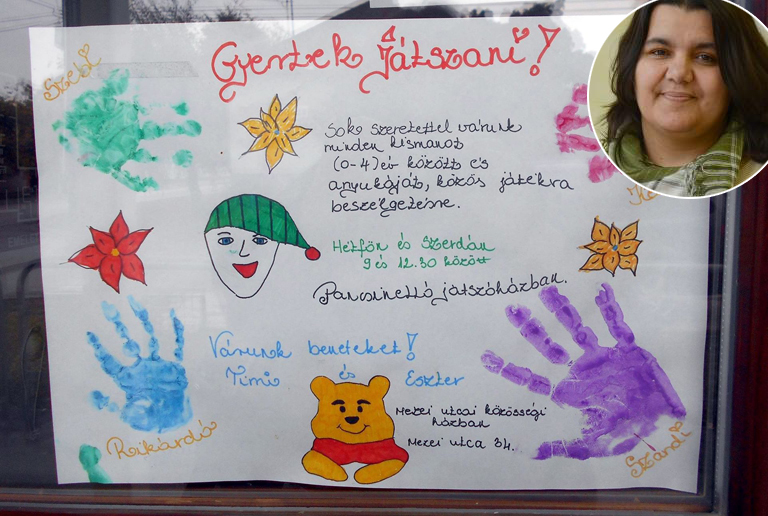 Gyertek Játszani!
Szebi
Sok szeretettel várunk
minden kismanót
(0-4) év között és
anyukáját, közös játékra
beszélgetésre.
Hétfőn és Szerdán
9 és 12.30 között
Pancsinelló játszóházban.
Várunk benneteket!
Timi és Eszter
Mezei utcai közösségi
házban
Mezei utca 34.
Rikárdó
Szandi